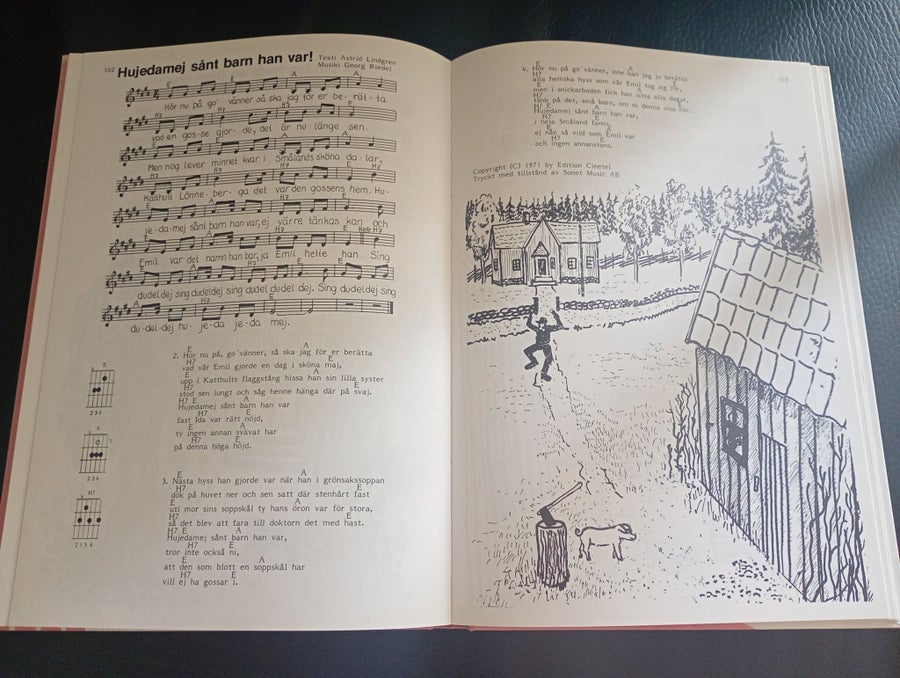 102 Hujedamej sånt barn han var!
Text: Astrid Lindgren
Musik: Georg Riedel
E A
Hör nu på go' vänner så ska jag för er berätta
H7 E
vad en gosse gjorde, det är nu länge sen.
E A
Men nog lever minnet kvar i Smålands sköna dalar,
H7 E
Katthult Lönneberga det var den gossens hem. Hu-
E A
jedamej sånt barn han var, ej värre tänkas kan och
H7 E Refr. H7
Emil var det namn han bar, ja Emil hette han. Sing
E H7 E
dudeldej sing dudeldej sing dudel dudel dej. Sing dudeldej sing
A H7 E
du-del-dej hu-jeda jeda mej.
E A
2. Hör nu på, go'vänner, så ska jag för er berätta
H7 E
vad vår Emil gjorde en dag i sköna maj,
E A
upp i Katthults flaggstång hissa han sin lilla syster
H7 E
stod sen lungt och såg henne hänga där på svaj.
H7 E A
Hujedamej sånt barn han var
H7 E
fast Ida var rätt nöjd,
E A
ty ingen annan svävat har
H7 E
på denna höga höjd.
E A
3. Nästa hyss han gjorde var när han i grönsakssoppan
H7 E
dök på huvet ner och sen satt där stenhårt fast
E A
uti mor sins soppskål ty hans öron var för stora,
H7 E
så det blev att fara till doktorn det med hast.
H7 E A
Hujedamej sånt barn han var,
H7 E
tror inte också ni,
E A
att den som blott en soppskål har
H7 E
vill ej ha gossar i.
E
2 3 1
A
2 3 4
H7
2 1 3 4
103
E A
4. Hör nu på go'vänner, inte kan jag ju berätta
H7 E
alla hemska hyss som vår Emil tog sig för,
E A
men i snickarboden fick han sitta alla dagar,
H7 E
tänk på det, små barn, om ni denna visa hör.
H7 E A
Hujedamej sånt barn han var,
H7 E
i hela Småland fanns,
E A
ej nån så vild som Emil var
H7 E
och ingen annanstans.
Copyright (C) 1971 by Edition Cinetel
Tryckt med tillstånd av Sonet Music AB